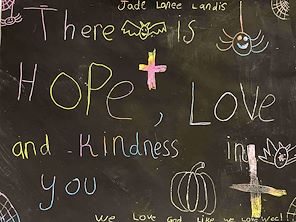 Jade Lanee Landis
There is
HOPe, LOVe
and kindness in
you
We Love God like we love Wec!!